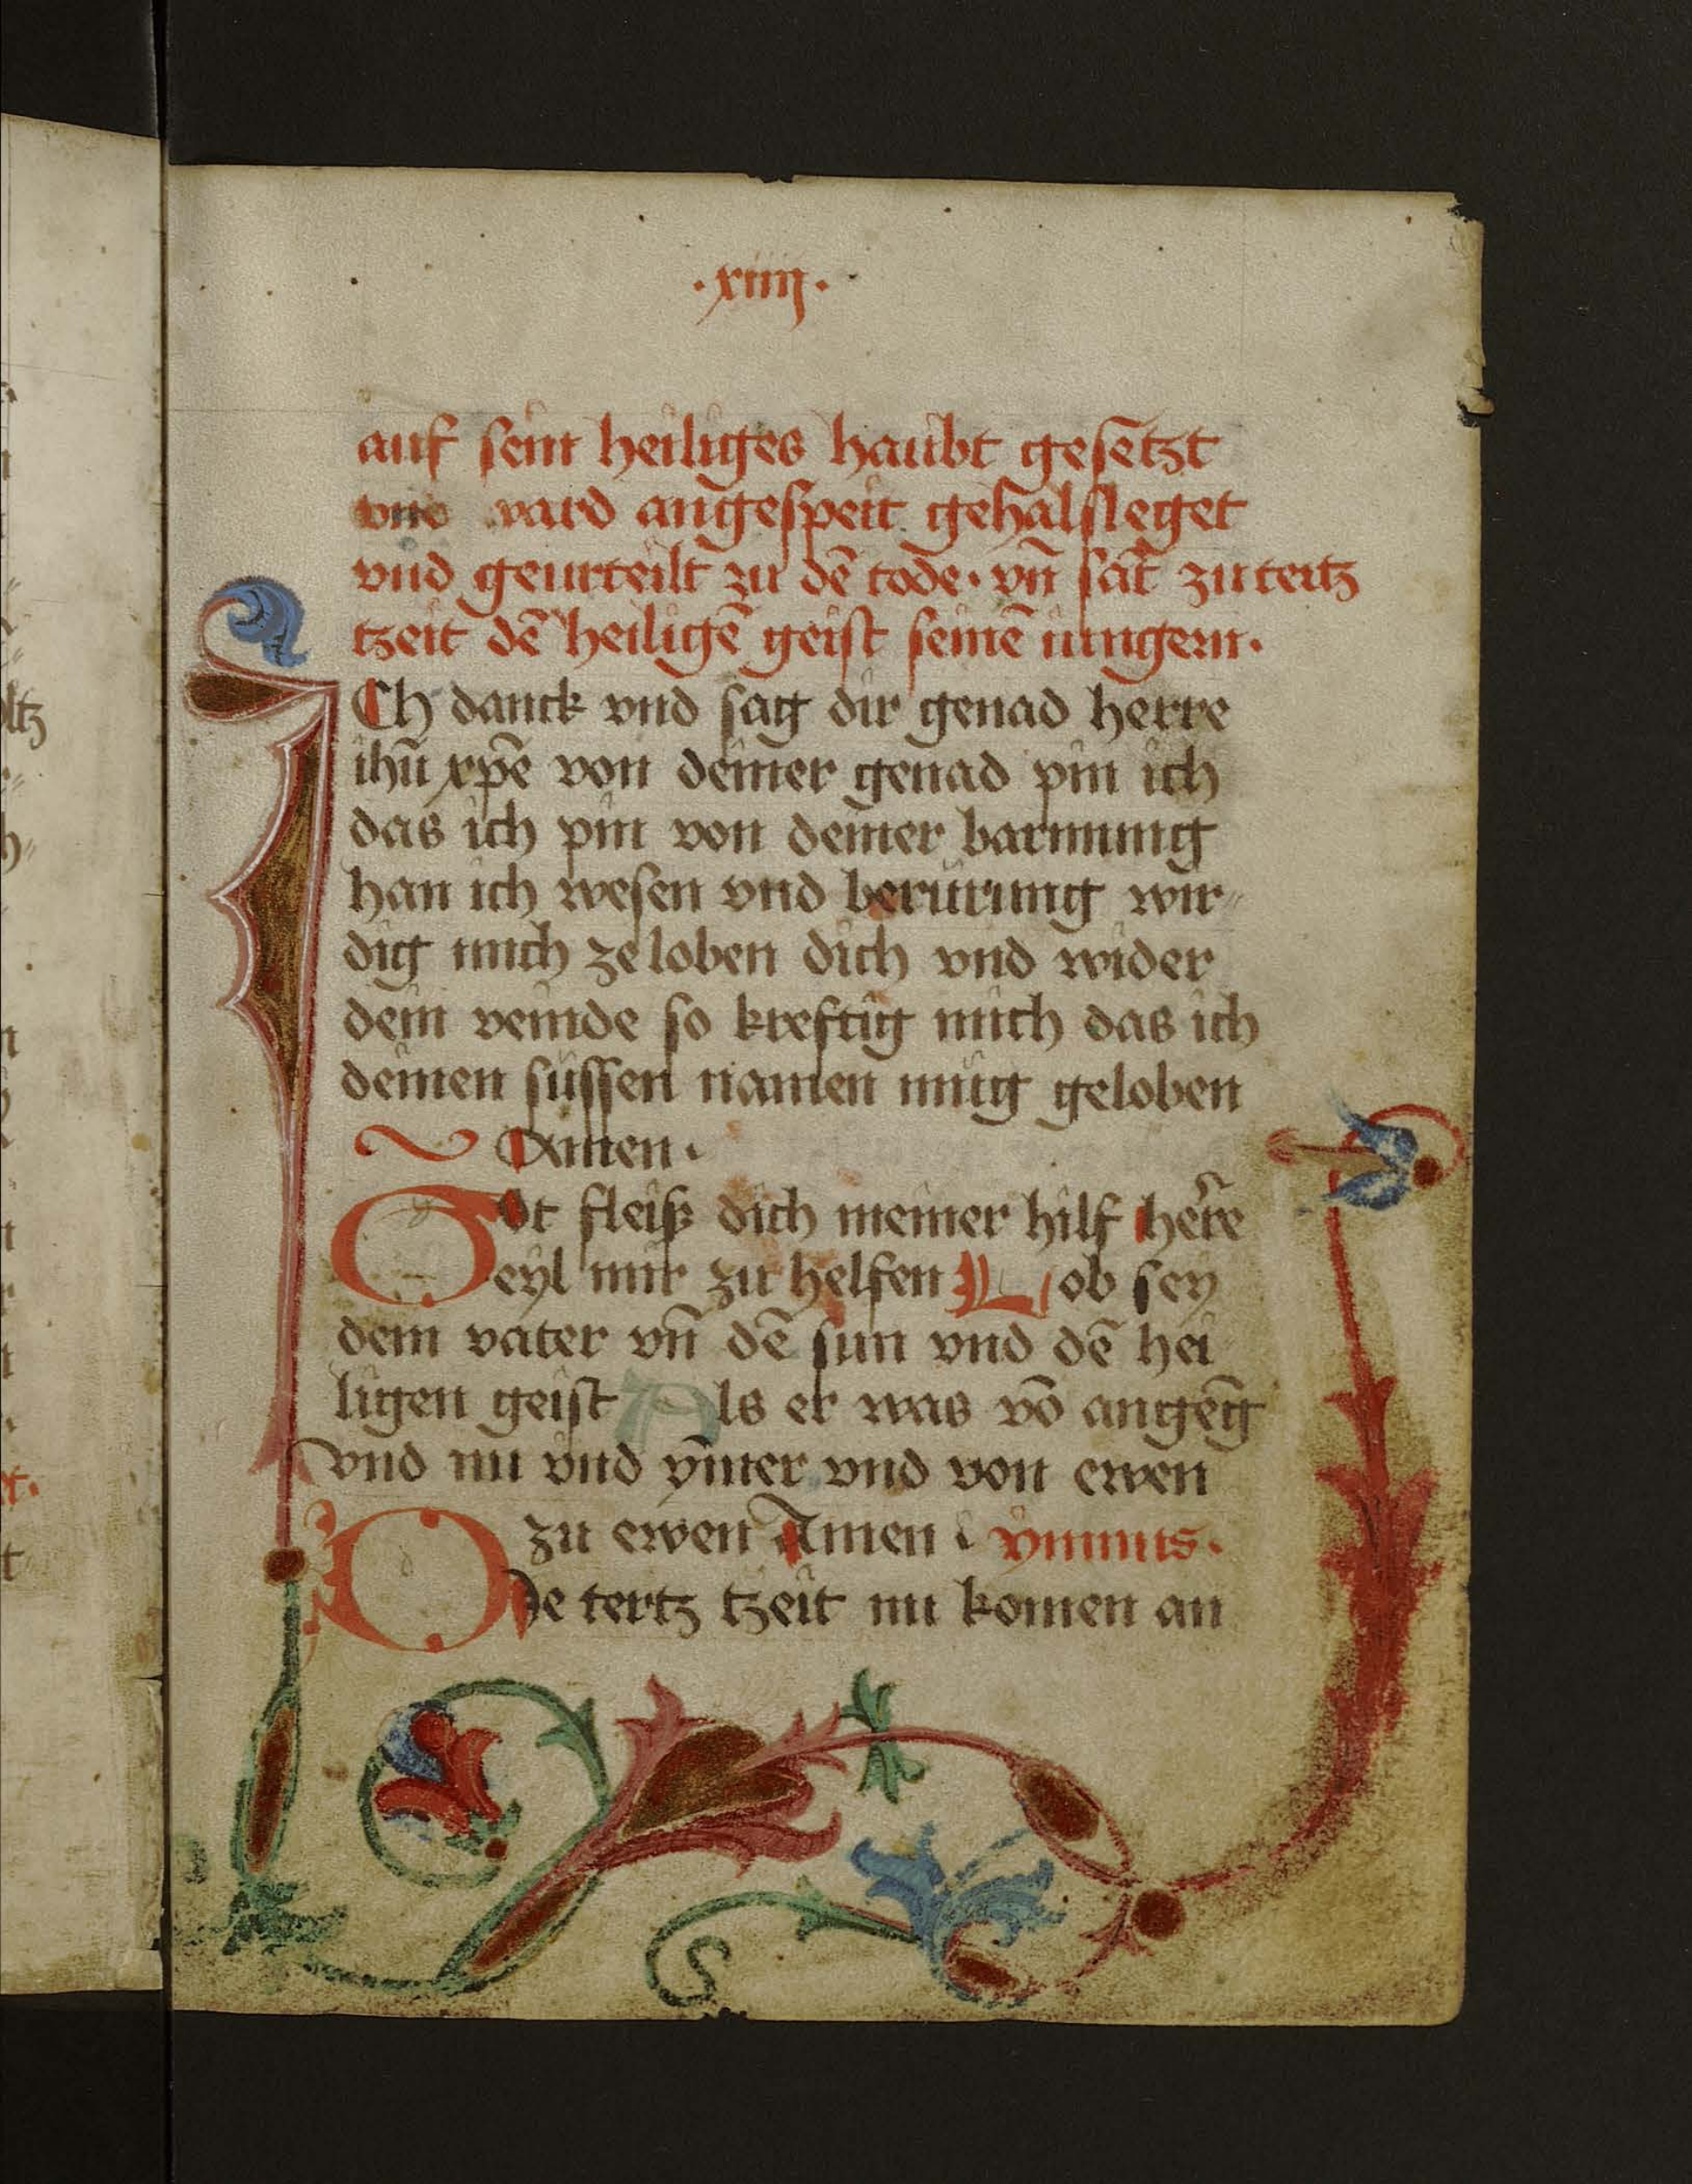 ·xiiij·
auf sein heiliges haubt gesetzt
vnd ward angespeit gehalsleget
vnd geurteilt zu dē tode · vñ sāt zu tertz
tzeit dē heiligē geist seinē iungern ·
ICh danck vnd sag dir genad herre
ihū xp̄e von deiner genad pin ich
das ich pin von deiner barmung
han ich wesen vnd berürung wir⸗
dig mich ze loben dich vnd wider
dein veinde so kreftig mich das ich
deinen süssen namen müg geloben
Amen ·
Got fleiß dich meiner hilf herre
eyl mir zu helfen Lob sey
dem vater vñ dē sun vnd dē hei
ligen geist Als er was vō angenḡ
vnd nu vnd ym̄er vnd von ewen
zu ewen Amen ymnus ·
De tertz tzeit nu komen an